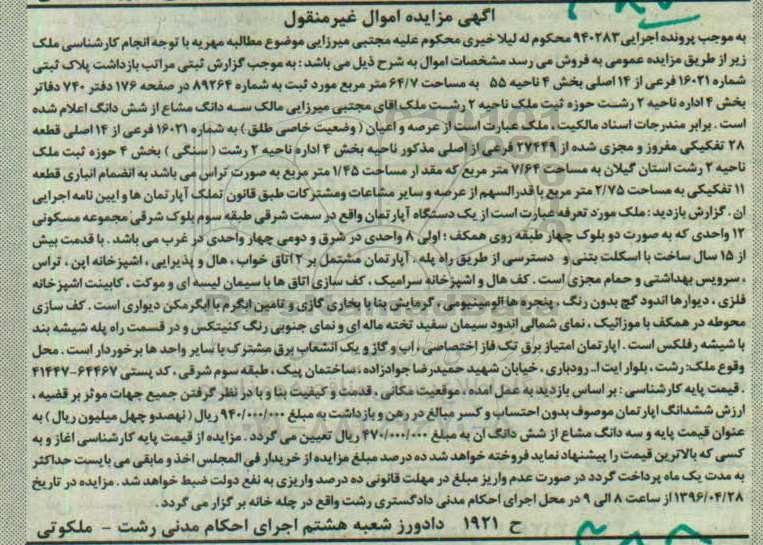 آگهی مزایده اموال غیرمنقول
به موجب پرونده اجرایی ۹۴۰۲۸۳ محکوم له لیلا خیری محکوم علیه مجتبی میرزایی موضوع مطالبه مهریه با توجه انجام کارشناسی ملک
زیر از طریق مزایده عمومی به فروش می رسد مشخصات اموال به شرح ذیل می باشد : به موجب گزارش ثبتی مراتب بازداشت پلاک ثبتی
شماره ۱۶۰۲۱ فرعی از ۱۴ اصلی بخش ۴ ناحیه ۵۵ به مساحت ۶۴/۷ متر مربع مورد ثبت به شماره ۸۹۲۶۴ در صفحه ۱۷۶ دفتر ۷۴۰ دفاتر
بخش ۴ اداره ناحیه ۲ رشت حوزه ثبت ملک ناحیه ۲ رشت ملک اقای مجتبی میرزایی مالک سه دانگ مشاع از شش دانگ اعلام شده
است . برابر مندرجات اسناد مالکیت ، ملک عبارت است از عرصه و اعیان ( وضعیت خاصی طلق ) به شماره ۱۶۰۲۱ فرعی از ۱۴ اصلی قطعه
۲۸ تفکیکی مفروز و مجزی شده از ۲۷۴۴۹ فرعی از اصلی مذکور ناحیه بخش ۴ اداره ناحیه ۲ رشت ( سنگی ) بخش ۴ حوزه ثبت ملک
ناحیه ۲ رشت استان گیلان به مساحت ۷/۶۴ متر مربع که مقدار مساحت ۱/۴۵ متر مربع به صورت تراس می باشد به انضمام انباری قطعه
۱۱ تفکیکی به مساحت ۲/۷۵ متر مربع با قدرالسهم از عرصه و سایر مشاعات ومشترکات طبق قانون تملک آپارتمان ها و ایین نامه اجرایی
ان . گزارش بازدید : ملک مورد تعرفه عبارت است از یک دستگاه آپارتمان واقع در سمت شرقی طبقه سوم بلوک شرقی مجموعه مسکونی
۱۲ واحدی که به صورت دو بلوک چهار طبقه روی همکف : اولی ۸ واحدی در شرق و دومی چهار واحدی در غرب می باشد . با قدمت بیش
از ۱۵ سال ساخت با اسکلت بتنی و دسترسی از طریق راه پله . آپارتمان مشتمل بر ۲ اتاق خواب ، هال و پذیرایی ، اشپزخانه اپن ، تراس
، سرویس بهداشتی و حمام مجزی است . کف هال و اشپزخانه سرامیک ، کف سازی اتاق ها با سیمان لیسه ای و موکت ، کابینت اشپزخانه
فلزی ، دیوارها اندود گچ بدون رنگ ، پنجره ها الومینیومی ، گرمایش بنا با بخاری گازی و تامین ابگرم با ابگرمکن دیواری است . کف سازی
محوطه در همکف با موزائیک ، نمای شمالی اندود سیمان سفید تخته ماله ای و نمای جنوبی رنگ کنیتکس و در قسمت راه پله شیشه بند
با شیشه رفلکس است . اپارتمان امتیاز برق تک فاز اختصاصی ، اب و گاز و یک انشعاب برق مشترک با سایر واحد ها برخوردار است . محل
وقوع ملک: رشت ، بلوار ایت ا.. رودباری ، خیابان شهید حمیدرضا جوادزاده ، ساختمان پیک ، طبقه سوم شرقی ، کد پستی ۶۴۴۶۷-۴۱۴۴۷
. قیمت پایه کارشناسی : بر اساس بازدید به عمل امده ، موقعیت مکانی ، قدمت و کیفیت بنا و با در نظر گرفتن جمیع جهات موثر بر قضیه ،
ارزش ششدانگ اپارتمان موصوف بدون احتساب و کسر مبالغ در رهن و بازداشت به مبلغ ۹۴۰/۰۰۰/۰۰۰ ریال ( نهصدو چهل میلیون ریال ) به
عنوان قیمت پایه و سه دانگ مشاع از شش دانگ ان به مبلغ ۴۷۰/۰۰۰/۰۰۰ ریال تعیین می گردد . مزایده از قیمت پایه کارشناسی اغاز و به
کسی که بالاترین قیمت را پیشنهاد نماید فروخته خواهد شد ده درصد مبلغ مزایده از خریدار فی المجلس اخذ و مابقی می بایست حداکثر
به مدت یک ماه پرداخت گردد در صورت عدم واریز مبلغ در مهلت قانونی ده درصد واریزی به نفع دولت ضبط خواهد شد . مزایده در تاریخ
۱۳۹۶/۰۴/۲۸ از ساعت ۸ الی ۹ در محل اجرای احکام مدنی دادگستری رشت واقع در چله خانه بر گزار می گردد .
ح ۱۹۲۱ دادورز شعبه هشتم اجرای احکام مدنی رشت - ملکوتی